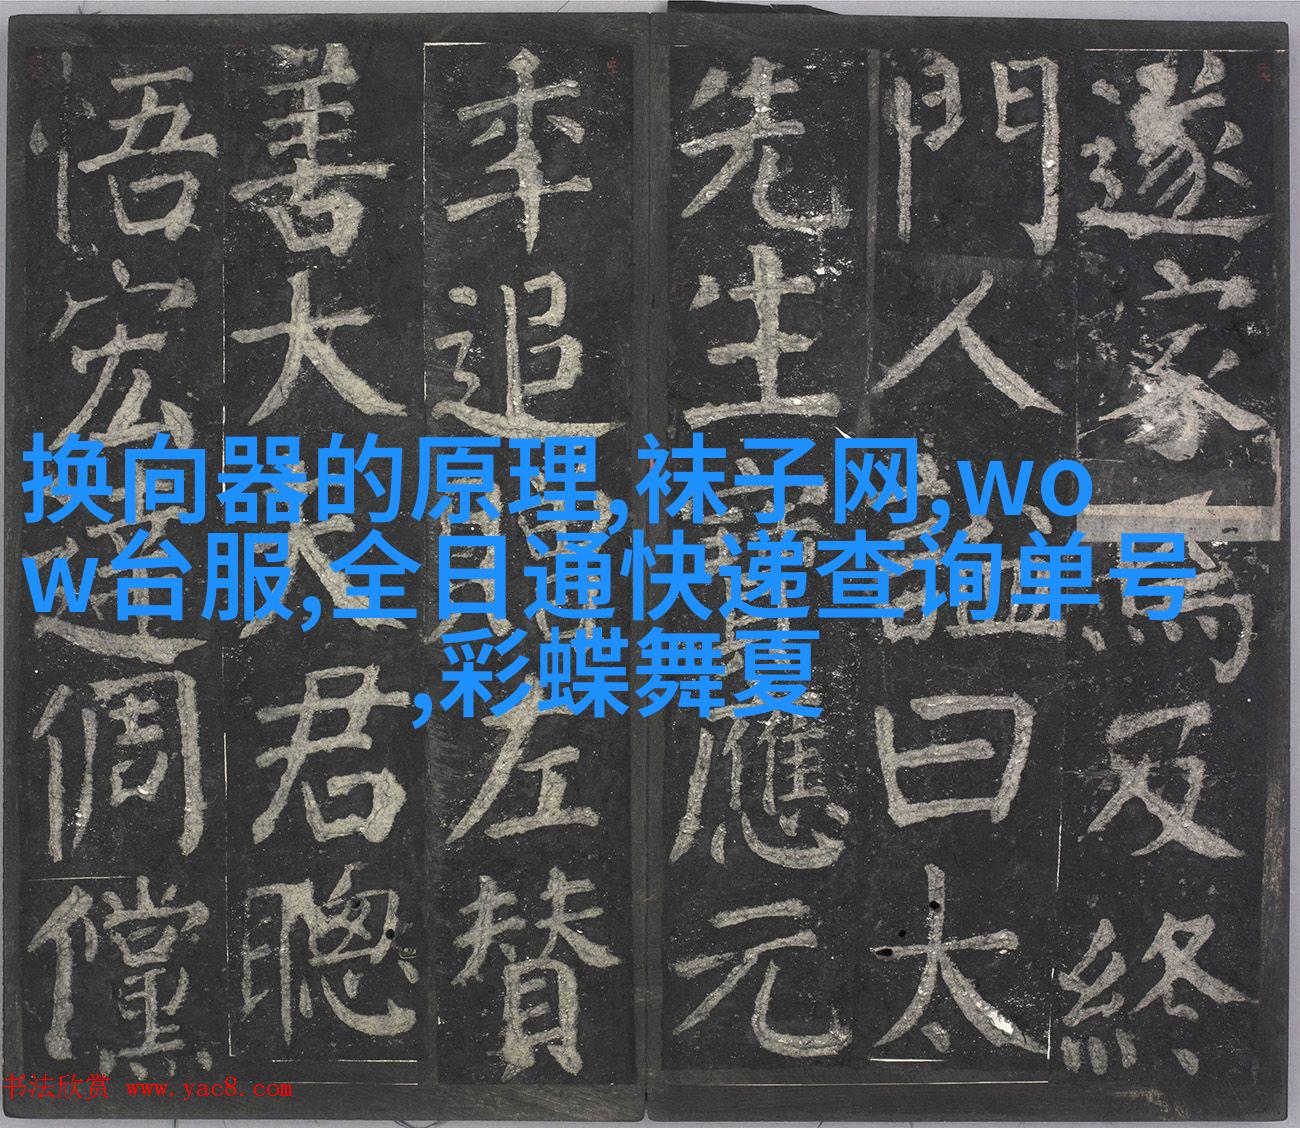 换向器的原理,袜子网,wo
w台服,全日通快递查询单号
,彩蝶舞夏
遂家焉及終
門人謚曰太
先生寶應元
年追贈左贊
善大夫君聰
悟宏達倜儻
书法欣赏 www.yac8.com